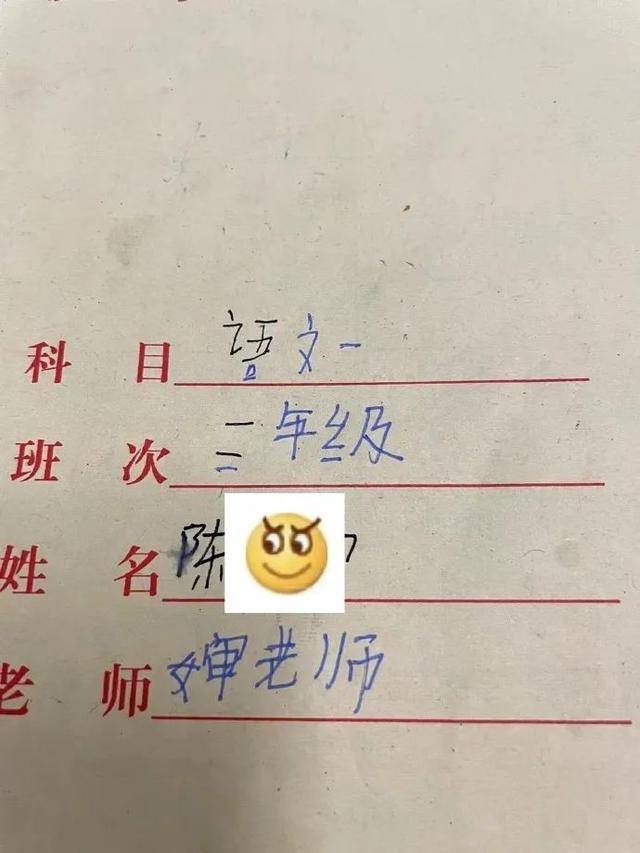 科 目 语文一
班 次 三年级
姓 名 陈
老 师 婶老师